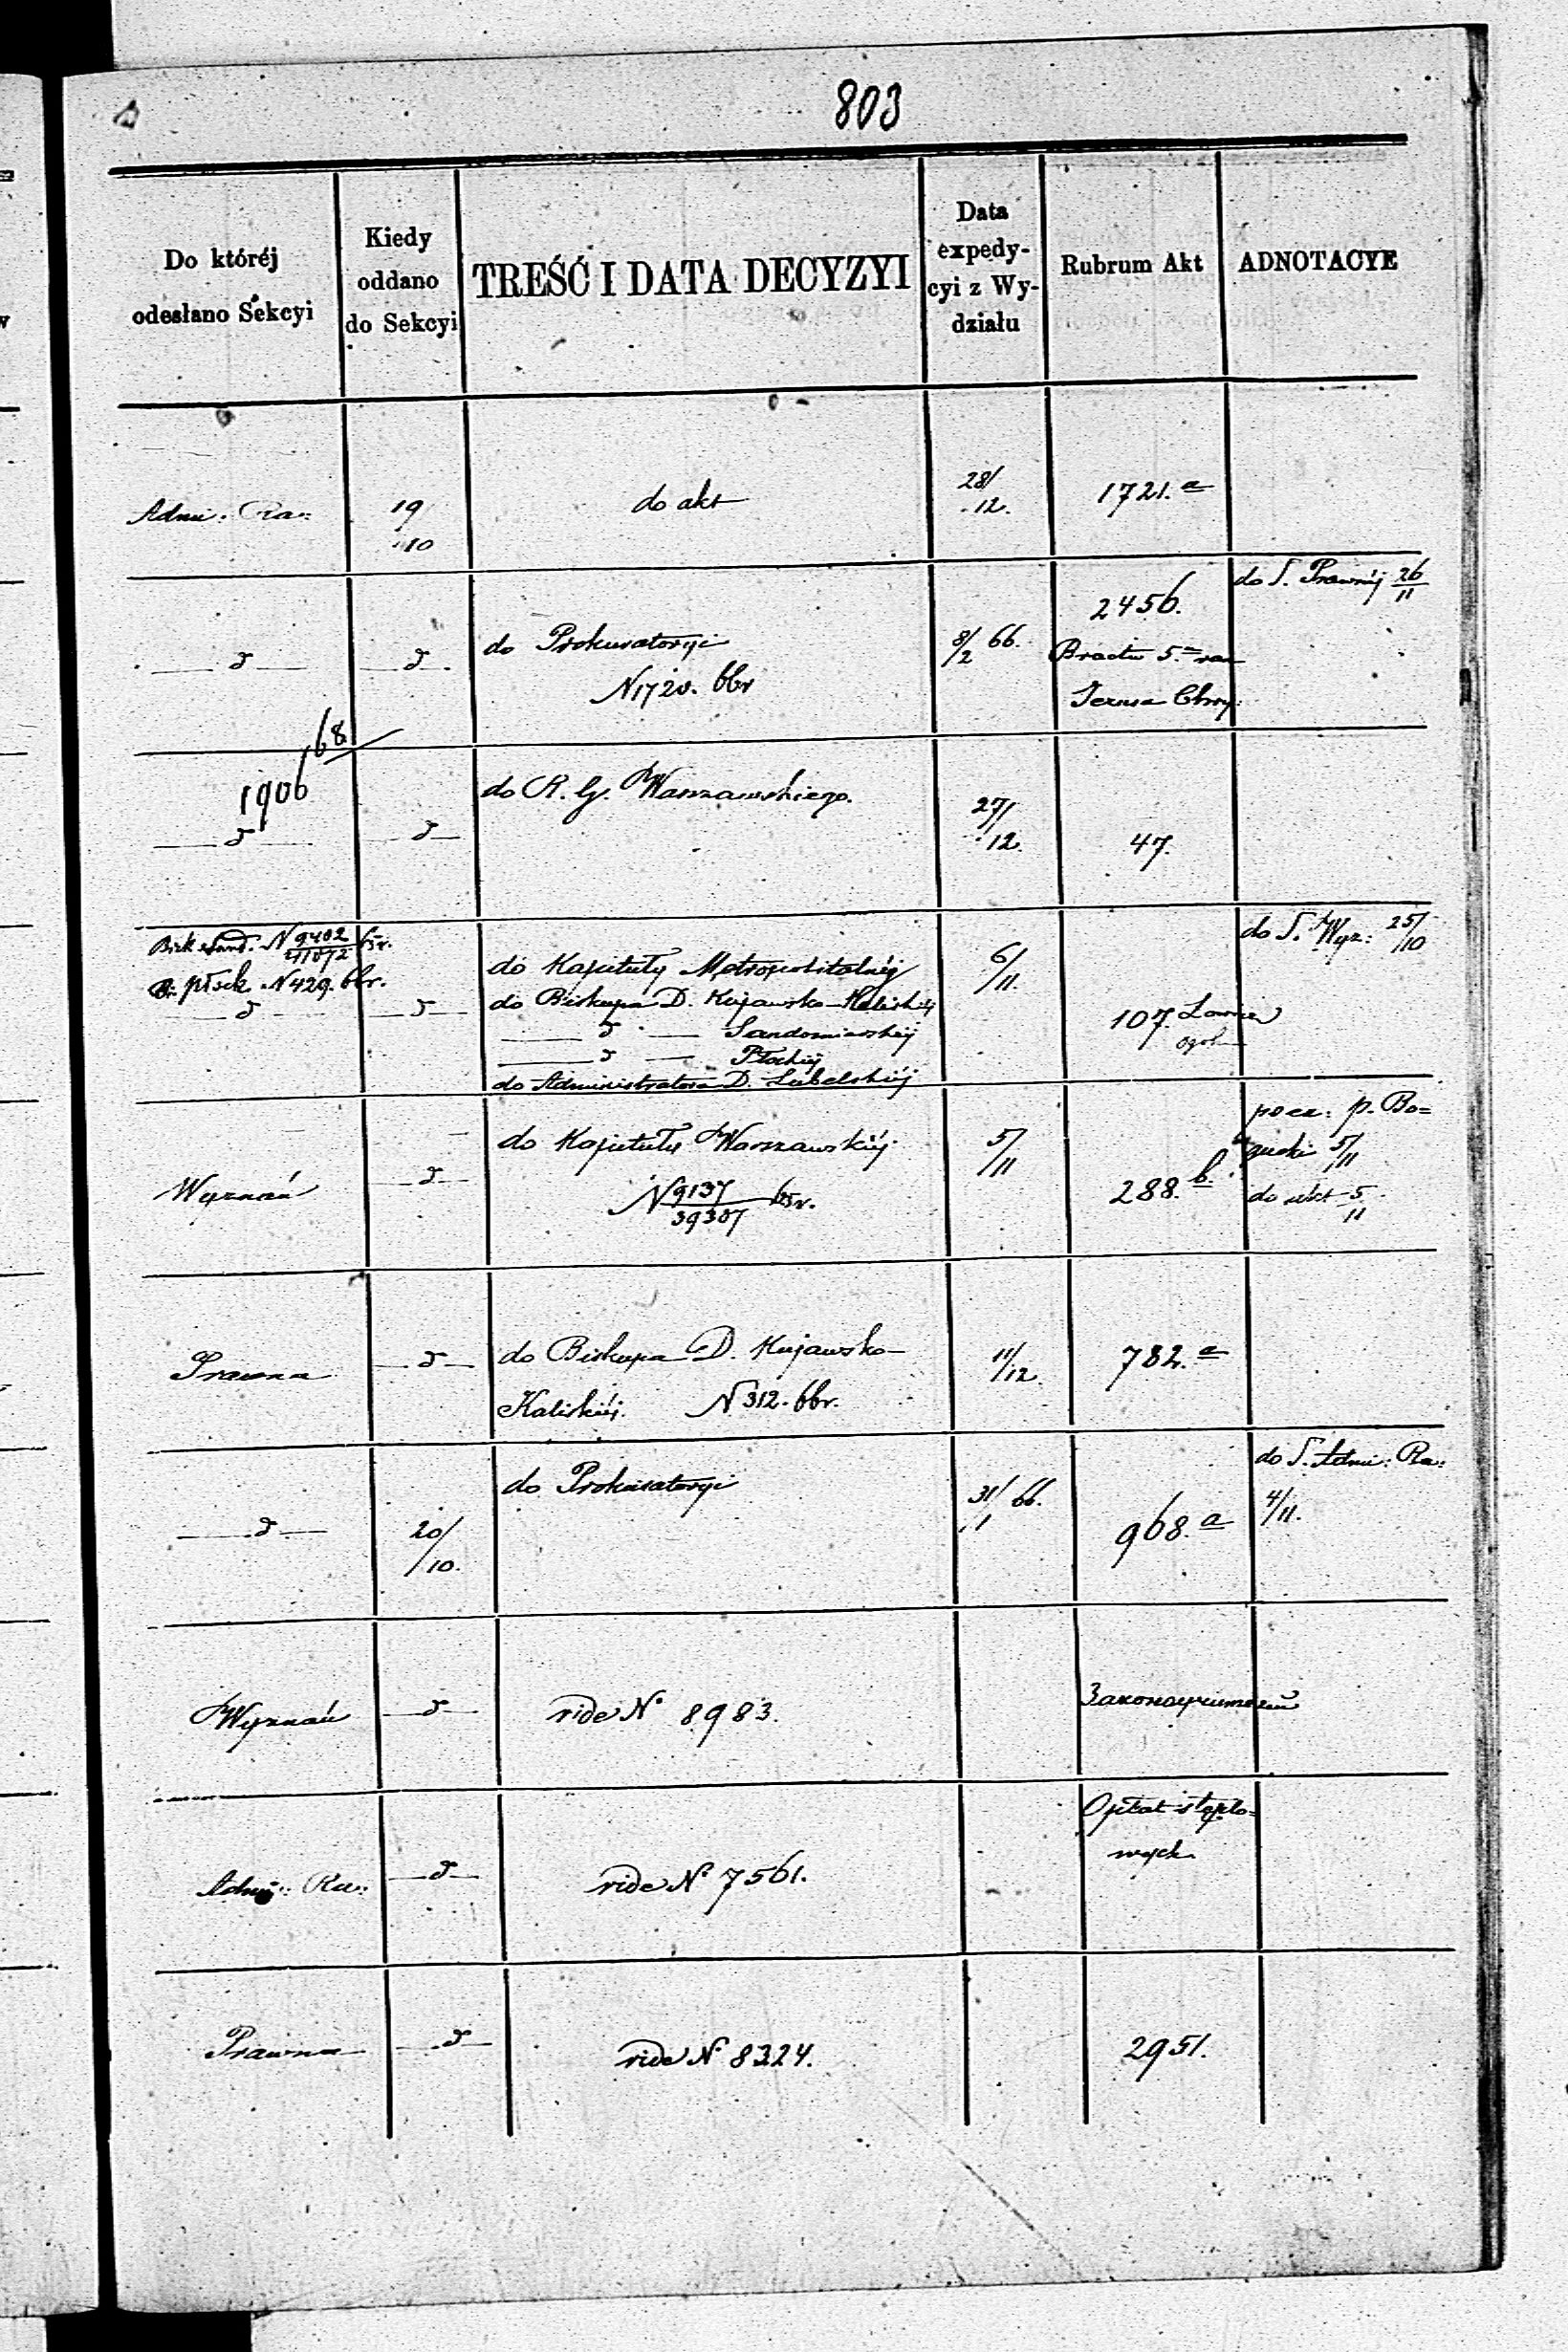 803
Do któréj
odesłano Sekcyi
Kiedy
oddano
do Sekcyi
TREŚĆ I DATA DECYZYI
Data
expedy-
cyi z Wy-
działu
Rubrum Akt
ADNOTACYE
Adm: Ra:
19
10
do akt
28/
12.
1721. a
d
d
do Prokuratoryi
N 1720. 66r
8/2 66.
2456.
Bractw 5. ran
Jezusa Chry:
do S. Prawnéj 26/11
1906/68
d
d
do R. G. Warszawskiego.
27/
12.
47.
Bisk Sand. N 9402/41072 65r.
Bi. płock N 429. 66r.
d
d
do Kapituły Metropolitalnéj
do Biskupa D. Kujawsko-Kaliskiéj
d Sandomierskiéj
d Płockiéj
do Administratora D. Lubelskiéj
6/11.
107.
do S. Wyz: 25/10
Wyznań
d
do Kapituły Warszawskiéj
N 9137/39307 65r.
5/11
288. b.
5/11
do akt 5/11
Prawna
d
do Biskupa D. Kujawsko-
Kaliskiéj. N 312. 66r.
11/12.
782. a
d
20/
10.
do Prokuratoryi
31/1 66.
968. a
do S. Adm: Ra:
4/11.
Wyznań
d
vide N° 8983.
Adm: Ra:
d
vide N° 7561.
Opłat stęplo=
wych
Prawna
d
vide N° 8324.
2951.